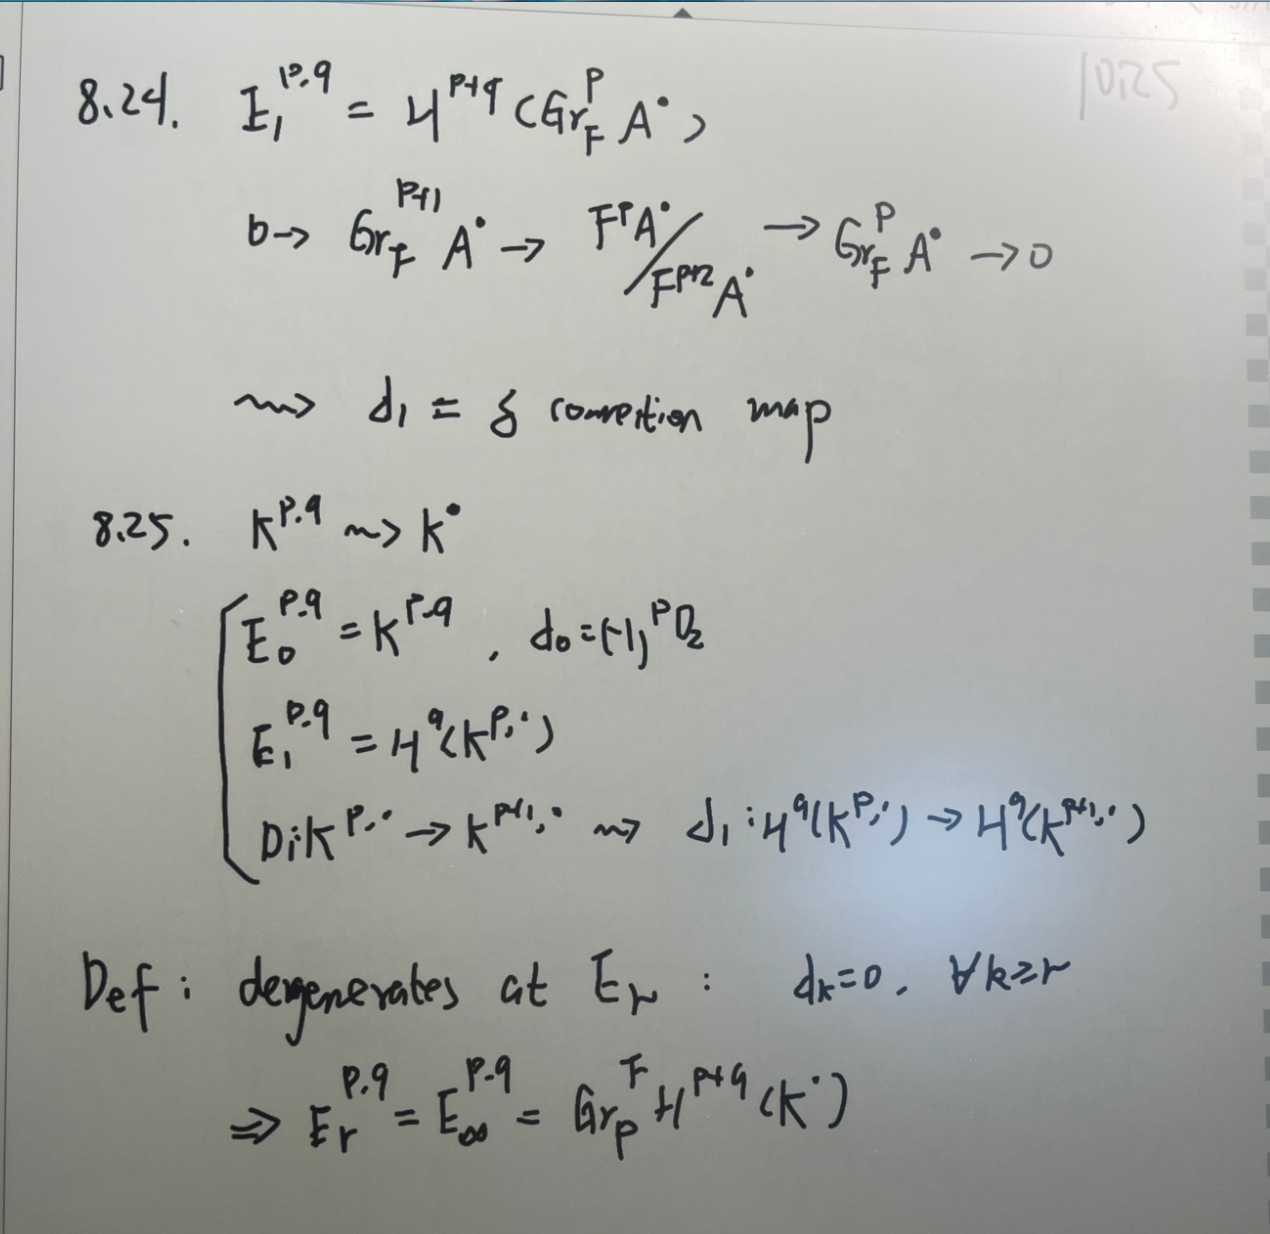 8.24. E₁^{p,q} = H^{p+q}(Gr_F^p A^•)
0 → Gr_F^{p+1} A^• → F^pA^•/F^{p+2}A^• → Gr_F^p A^• → 0
⇝ d₁ = δ connection map
8.25. K^{p,q} ⇝ K^•
E₀^{p,q} = K^{p,q}, d₀ = (-1)^p D₂
E₁^{p,q} = H^q(K^{p,•})
D₁: K^{p,•} → K^{p+1,•} ⇝ d₁: H^q(K^{p,•}) → H^q(K^{p+1,•})
Def: degenerates at E_r : d_k=0, ∀k≥r
⇒ E_r^{p,q} = E_∞^{p,q} = Gr_p^F H^{p+q}(K^•)